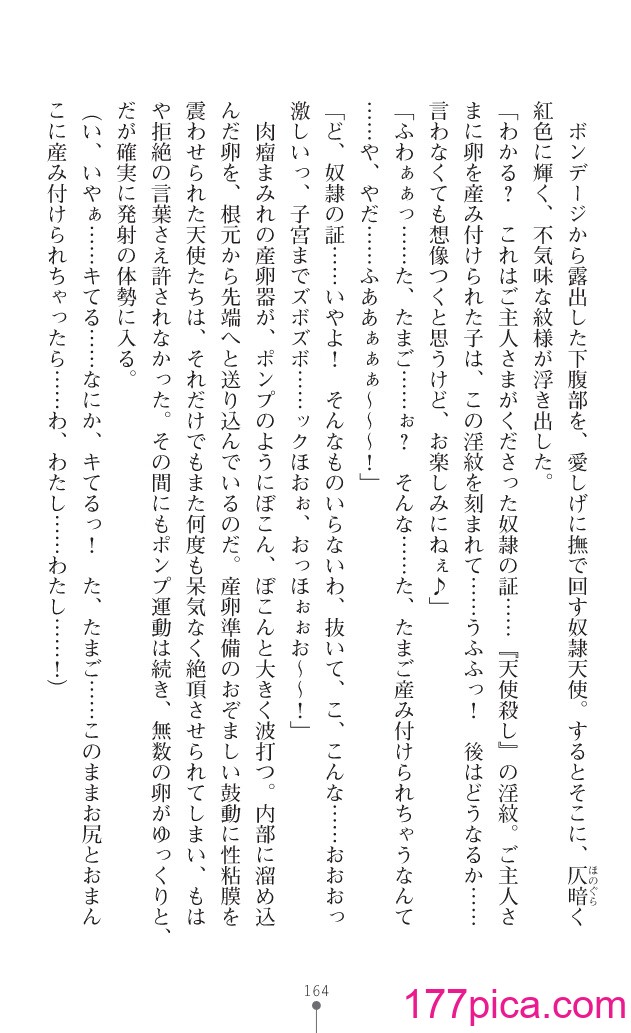 ボンデージから露出した下腹部を、愛しげに撫で回す奴隷天使。するとそこに、仄暗く
ほのぐら
紅色に輝く、不気味な紋様が浮き出した。
「わかる？　これはご主人さまがくださった奴隷の証……『天使殺し』の淫紋。ご主人さ
まに卵を産み付けられた子は、この淫紋を刻まれて……うふふっ！　後はどうなるか……
言わなくても想像つくと思うけど、お楽しみにねぇ♪」
「ふわぁぁっ……た、たまご……ぉ？　そんな……た、たまご産み付けられちゃうなんて
……や、やだ……ふああぁぁぁ～～～！」
「ど、奴隷の証……いやよ！　そんなものいらないわ、抜いて、こ、こんな……おおおっ
激しいっ、子宮までズボズボ……ックほおぉ、おっほぉぉお～～！」
肉瘤まみれの産卵器が、ポンプのようにぼこん、ぼこんと大きく波打つ。内部に溜め込
んだ卵を、根元から先端へと送り込んでいるのだ。産卵準備のおぞましい鼓動に性粘膜を
震わせられた天使たちは、それだけでもまた何度も呆気なく絶頂させられてしまい、もは
や拒絶の言葉さえ許されなかった。その間にもポンプ運動は続き、無数の卵がゆっくりと、
だが確実に発射の体勢に入る。
（い、いやぁ……キてる……なにか、キてるっ！　た、たまご……このままお尻とおまん
こに産み付けられちゃったら……わ、わたし……わたし……！）
164
177pica.com